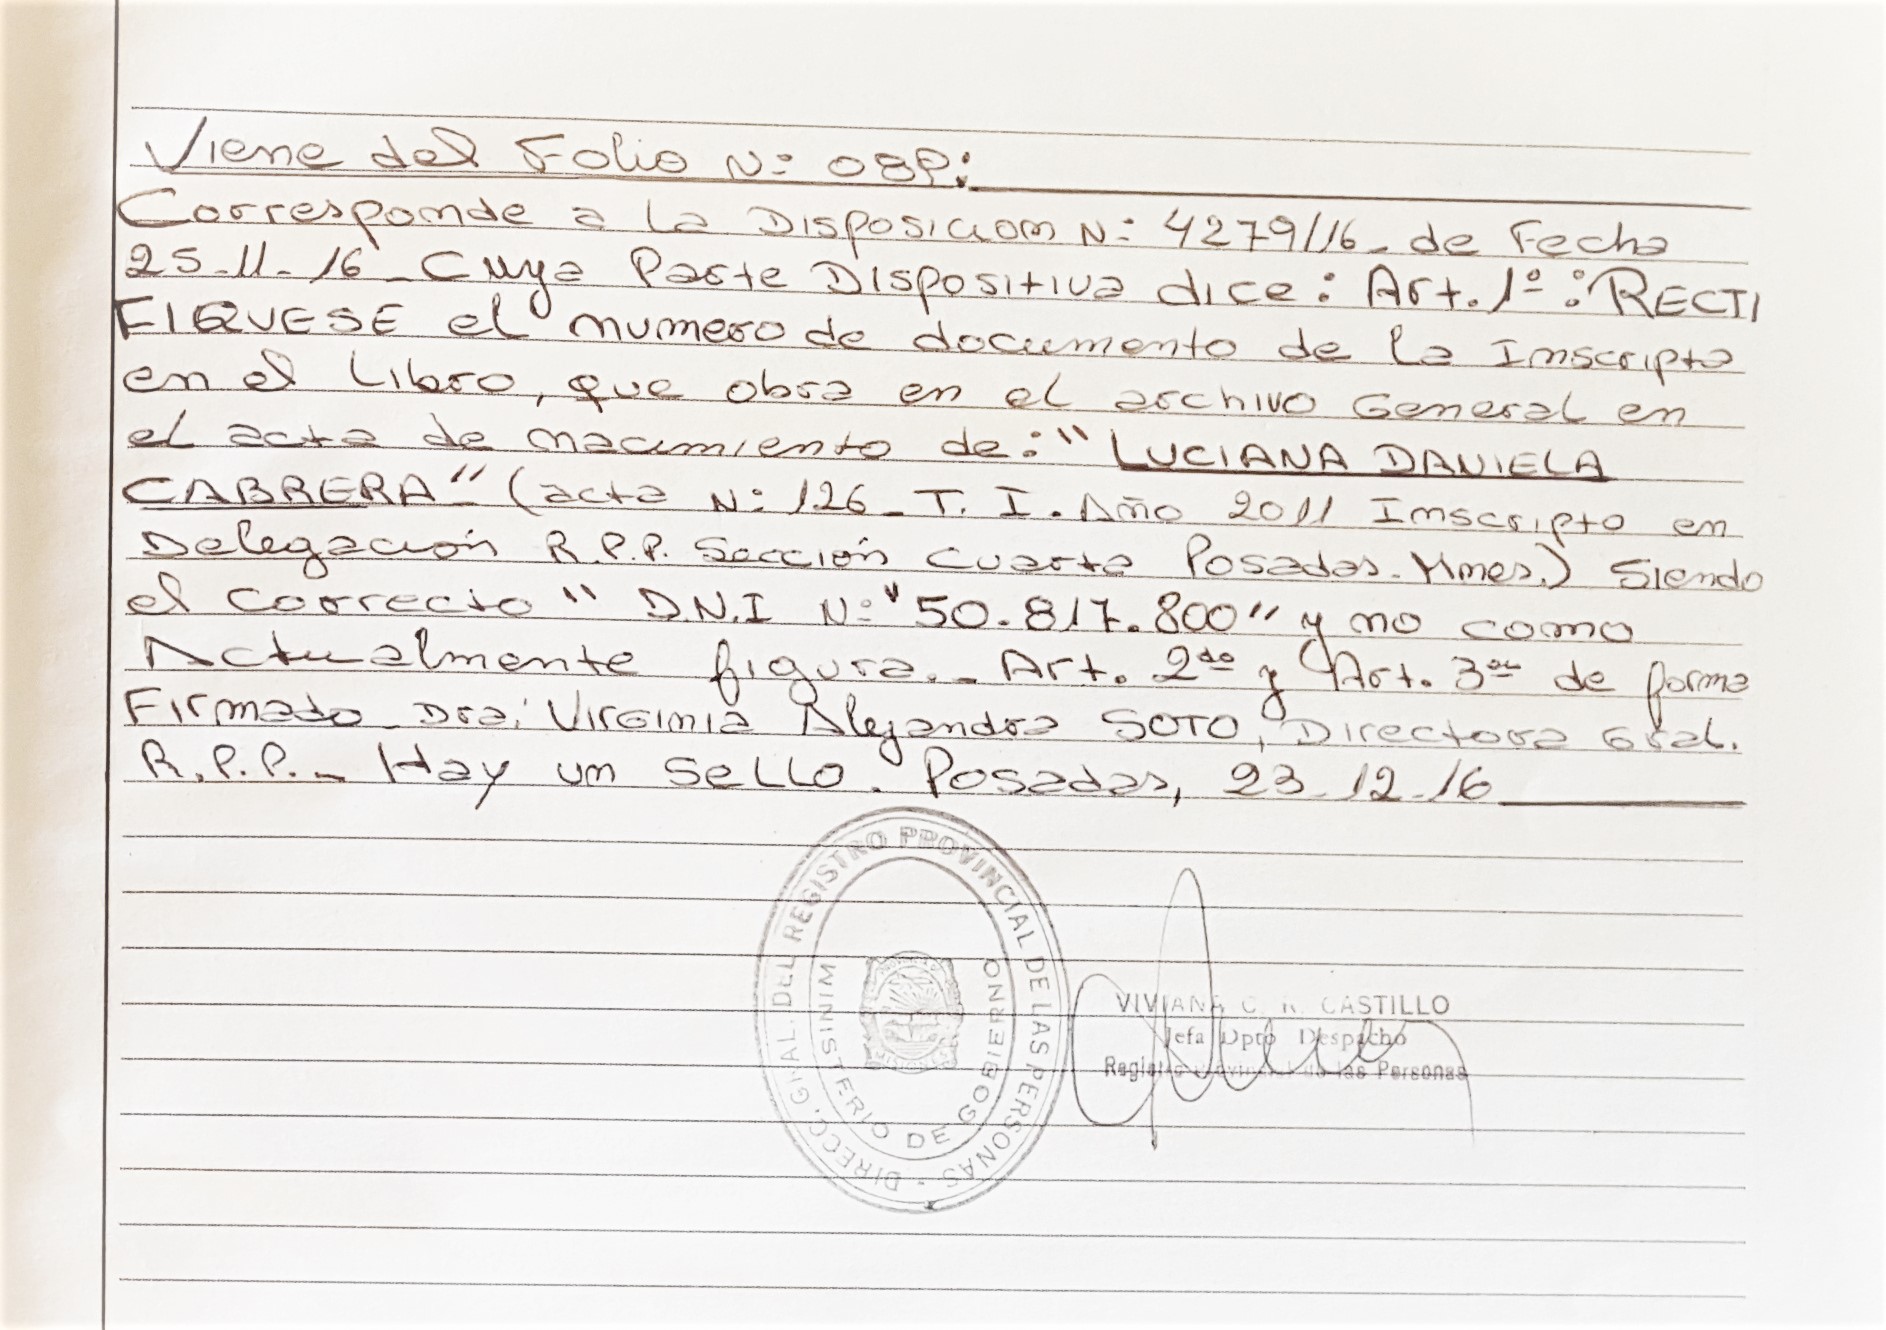 Viene del Folio N: 089:
Corresponde a la Disposicion N: 4279/16_ de Fecha
25-11-16_Cuya Parte Dispositiva dice: Art. 1º: RECTI
FIQUESE el numero de documento de la Inscripta
en el Libro, que obra en el archivo General en
el acta de nacimiento de: "LUCIANA DANIELA
CABRERA" (acta N: 126_T. I. Año 2011 Inscripto en
Delegación R.P.P. Sección Cuarta Posadas. Mnes.) Siendo
el correcto " D.N.I N: "50.817.800" y no como
Actualmente figura._ Art. 2do y Art. 3er de forma
Firmado Dra. Virginia Alejandra SOTO, Directora Gral.
R.P.P._ Hay un sello. Posadas, 23-12-16
DIRECC. GRAL. DEL REGISTRO PROVINCIAL DE LAS PERSONAS -
MINISTERIO DE GOBIERNO
MISIONES
VIVIANA C. R. CASTILLO
Jefa Dpto Despacho
Registro Provincial de las Personas